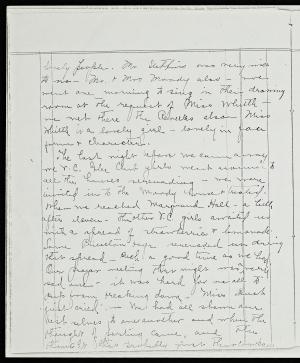 lovely people. Mr. Stebbins was very nice
to us - Mr. & Mrs Moody also - 
went one morning to sing in the drawing
room at the request of Miss Whittle -
we met there the also - Miss
Whittle is a lovely girl - lovely in face
form & character.
The last night before we came away
we V.C. Glee Club girls went around to
all the houses serenading - we were
invited in to the Moody house & treated.
When we reached Marquand Hall - a little
after eleven - the other V.C. girls awaited us
with a spread of strawberries & lemonade.
Some Princeton boys serenaded us during
this spread - Such a good time as we had.
Our prayer meeting that night was very
sad one - it was hard for us all to
keep from breaking down - Miss
just cried. We had all shown our
best selves to one another and when the
thought of parting came, and